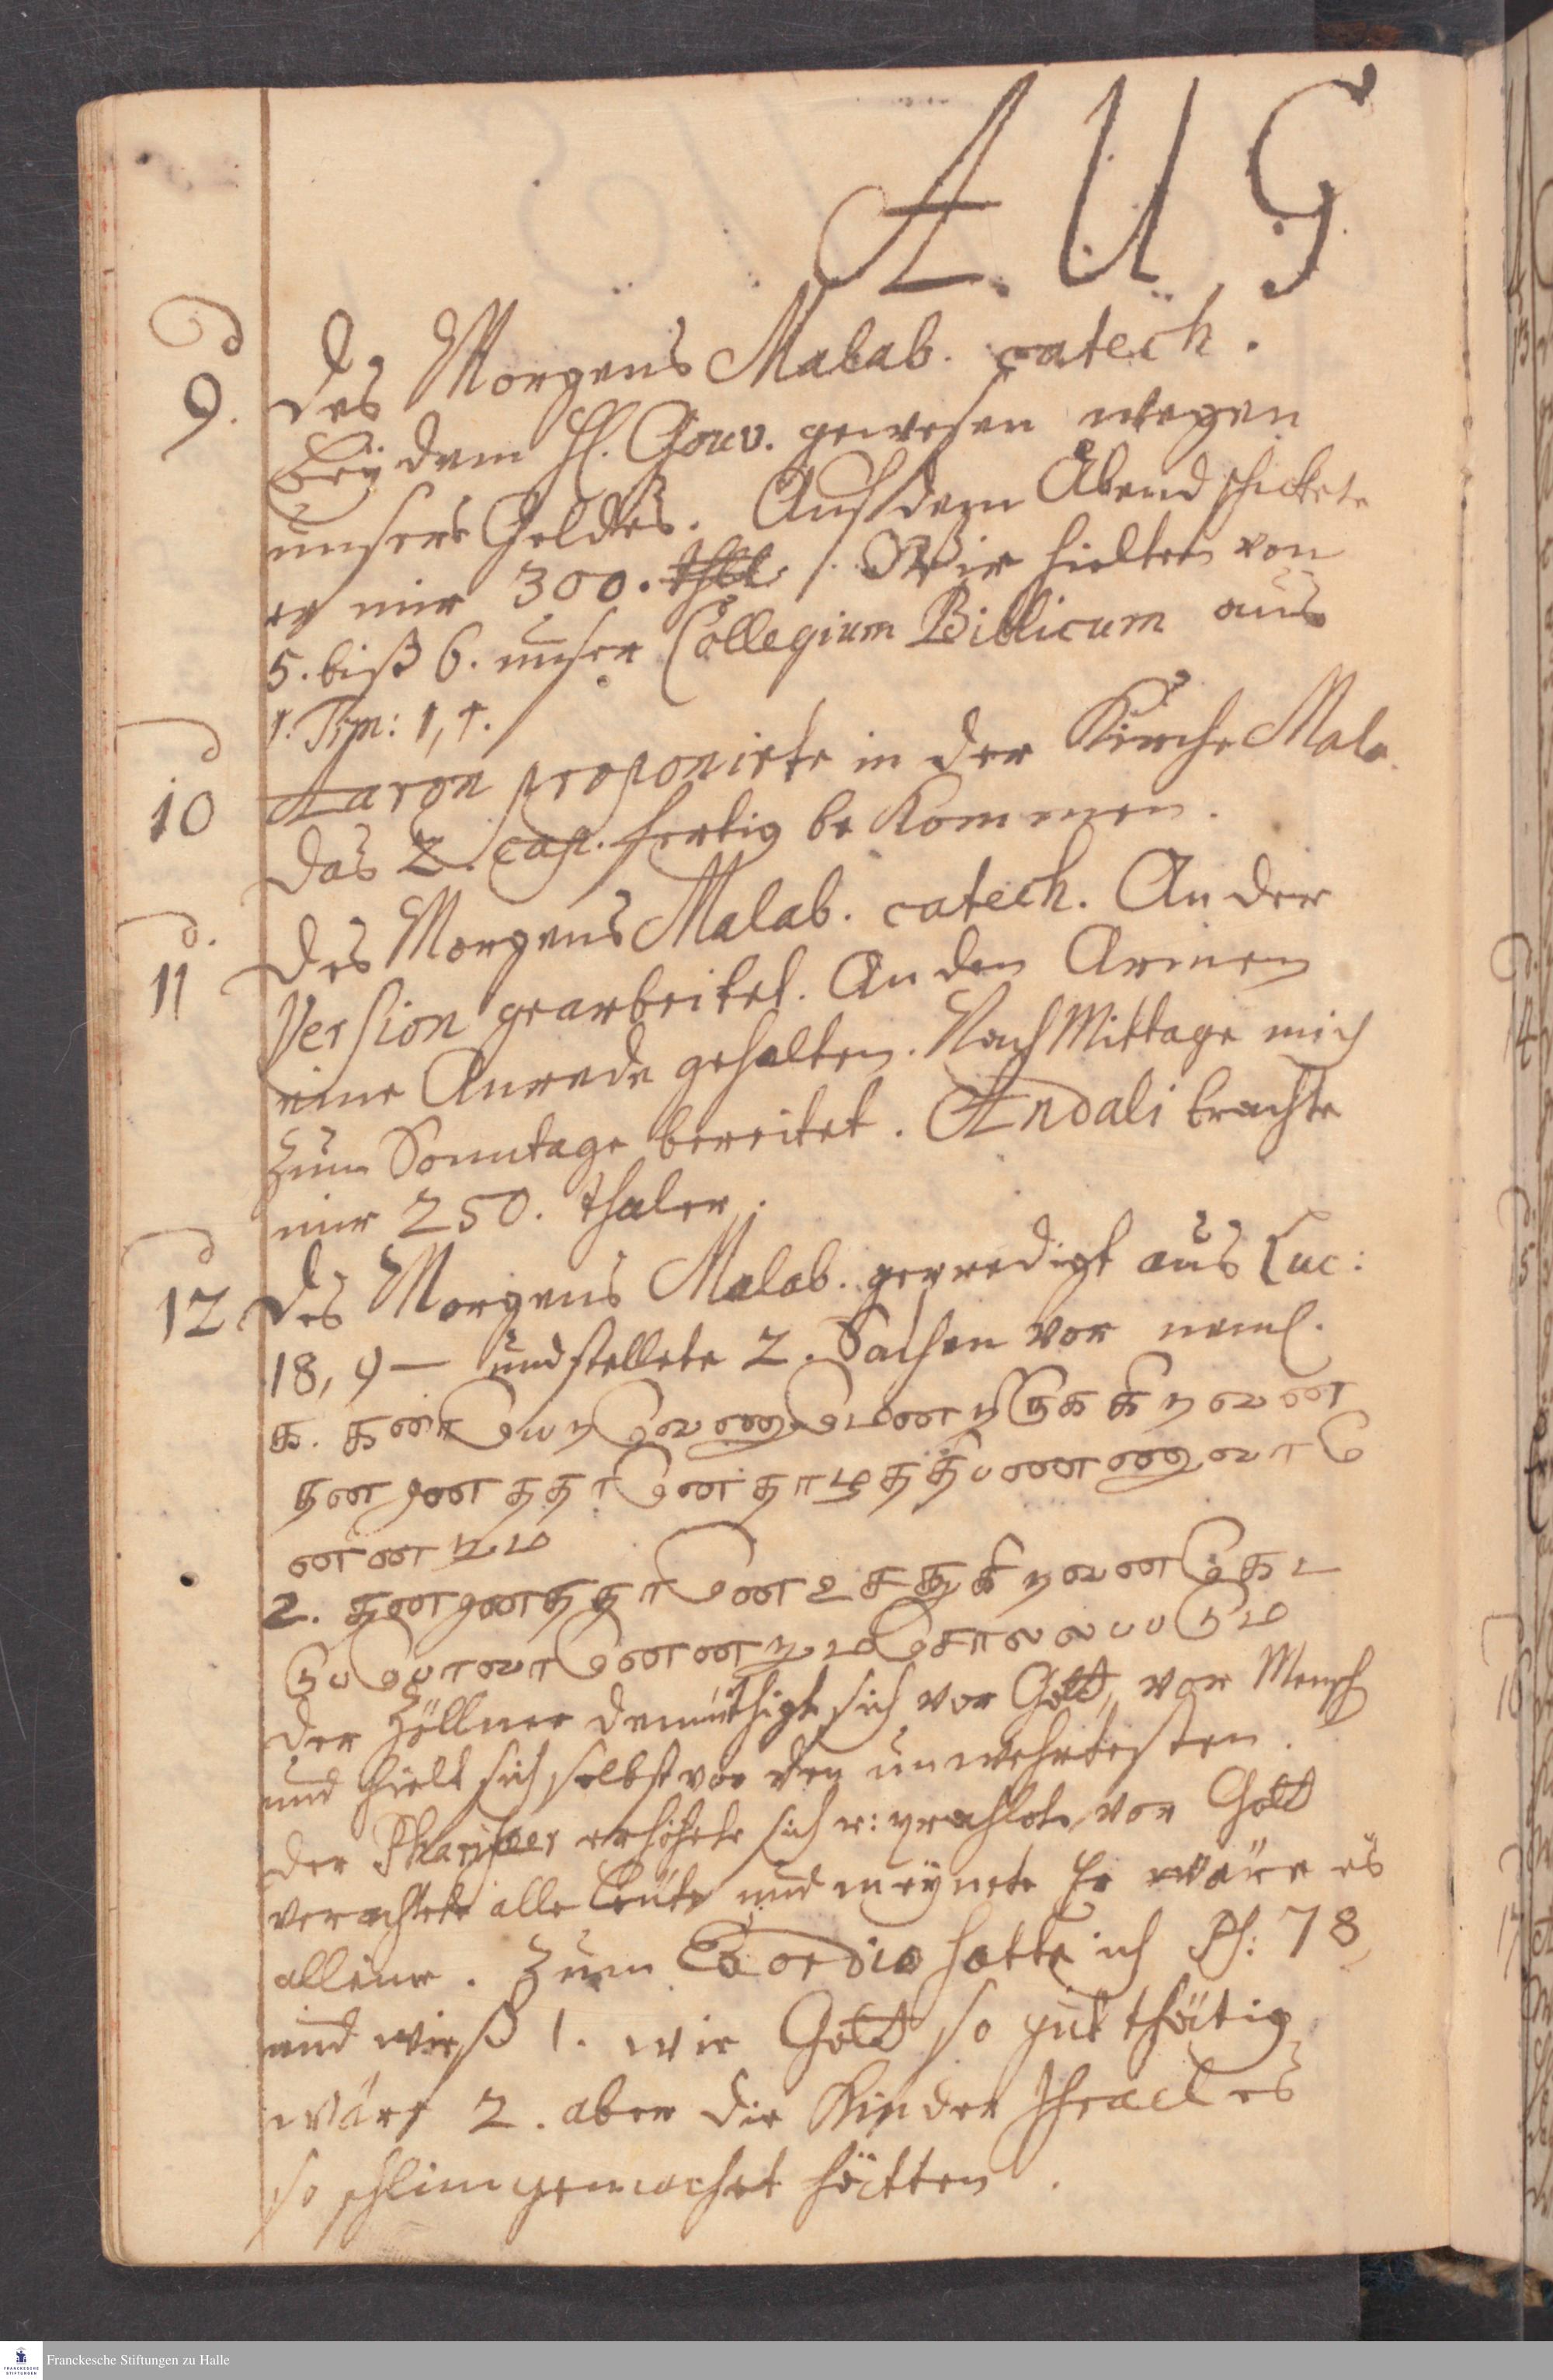 AUG
d
9. Des Morgens Malab. catech.
bey dem H. Gouv. gewesen wegen
unsers Geldes. Auf dem Abend schickete
er mir 300. thll. Wir hielten von
5. biß 6. unser Collegium Biblicum aus
1. Tim: 1, 1.
d
10 Aaron proponirte in der Kirche Mala.
das 2. cap. fertig bekommen.
d.
11 Des Morgens Malab. catech. An der
Version gearbeitet. An den Armen
eine Anrede gehalten. Nach Mittage mich
zum Sonntage bereitet. Andali brachte
mir 250. thaler.
d
12 Des Morgens Malab. gepredigt aus Luc:
18, 9 — und stellete 2. Sachen vor neml.
க.
தனனததானே தாழத்தி
2. தனனததானே உசததுகிறவன
சொலலபபடும
Der Zöllner demüthigt sich vor Gott, vor Mensch
und hielt sich selbst vor den unwehrtesten.
Der Phariseer erhöhete sich u: prahlete vor Gott
verachtete alle Leute und meynete Er wäre es
alleine. Zum Exordio hatte ich Ps: 78,
und wieß 1. wie Gott so gutthätig
wäre 2. aber die Kinder Israel es
so schlim gemachet hätten.
Franckesche Stiftungen zu Halle